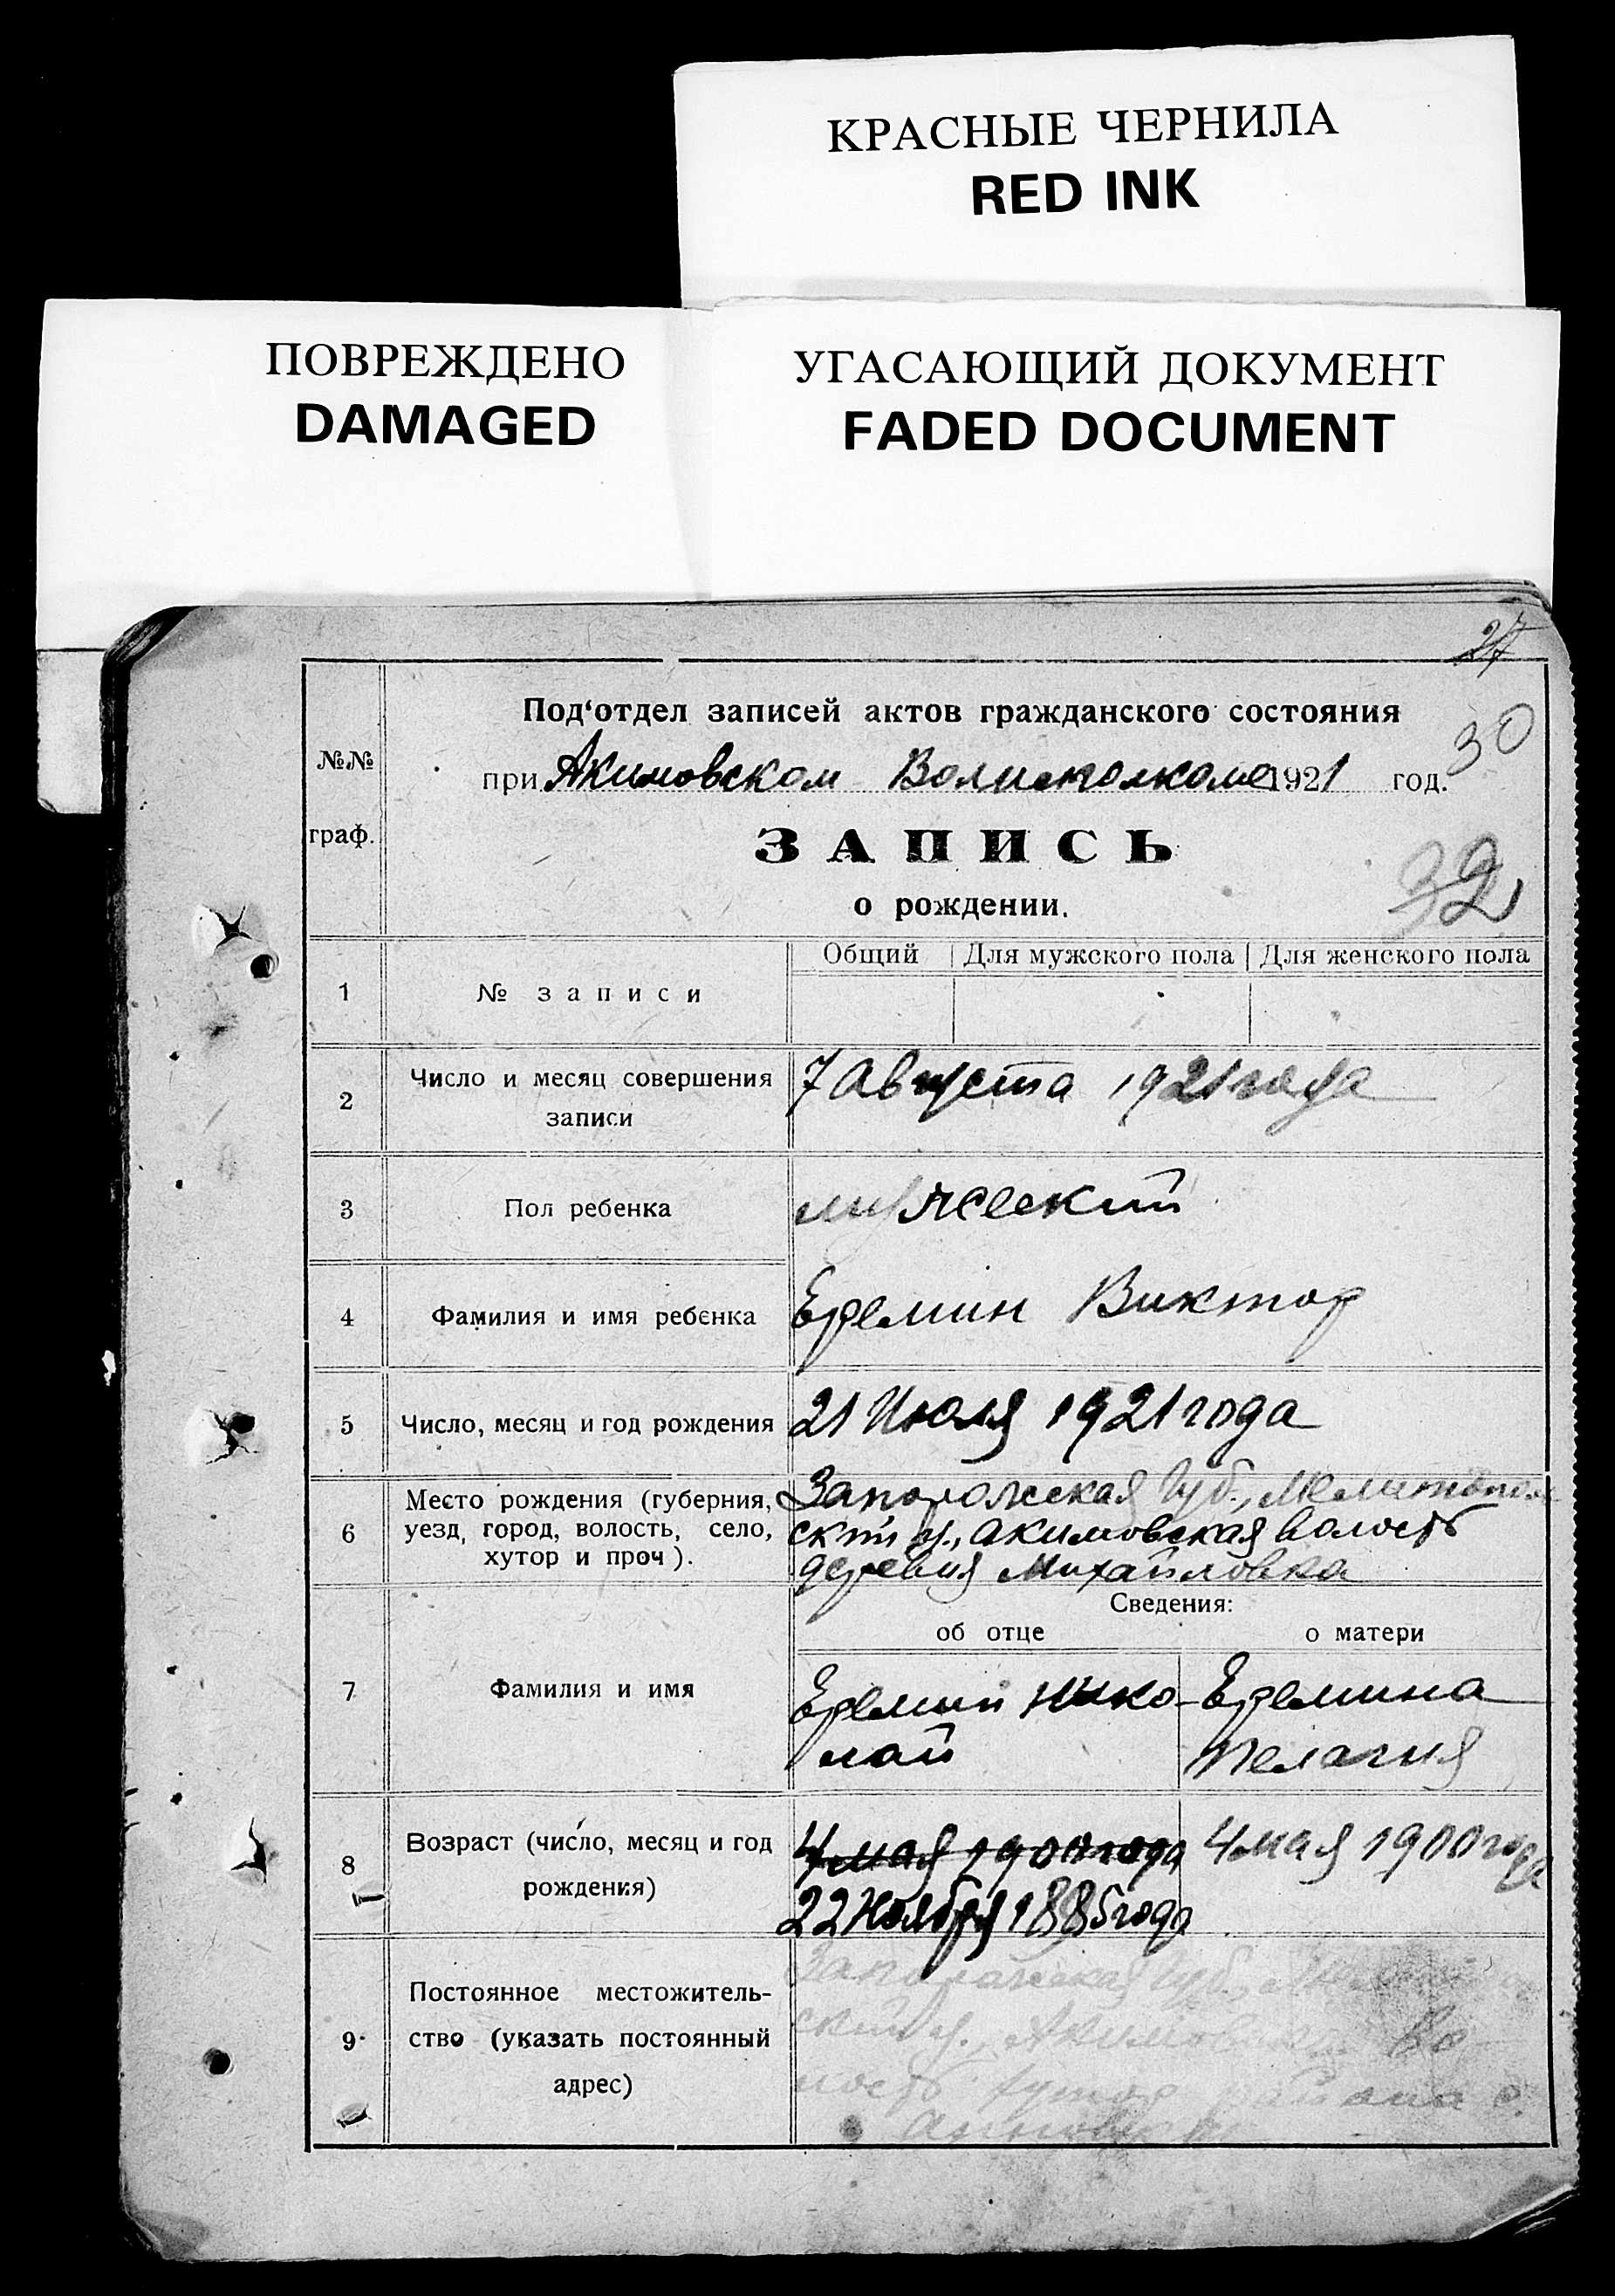 КРАСНЫЕ ЧЕРНИЛА
RED INK
ПОВРЕЖДЕНО
DAMAGED
УГАСАЮЩИЙ ДОКУМЕНТ
FADED DOCUMENT
27
Под'отдел записей актов гражданского состояния
30
№№
при Акимовском Волисполкоме 1921 год.
граф.
ЗАПИСЬ
32
о рождении.
Общий Для мужского пола Для женского пола
1 № записи
2 Число и месяц совершения записи
7 Августа 1921 года
3 Пол ребенка
мужеский
4 Фамилия и имя ребенка
Еремин Виктор
5 Число, месяц и год рождения
21 Июля 1921 года
6 Место рождения (губерния,
уезд, город, волость, село,
хутор и проч).
Запорожская Губ., Мелитополь
ский у., Акимовская волость
деревия Михайловка
Сведения:
об отце о матери
7 Фамилия и имя
Еремин Нико-
лай
Еремина
Пелагия
8 Возраст (число, месяц и год
рождения)
4 мая 1900 года
22 Ноября 1885 года
4 мая 1900 года
9 Постоянное местожитель-
ство (указать постоянный
адрес)
Запорожская Губ.,
ский у., Акимовская во
лость хутор